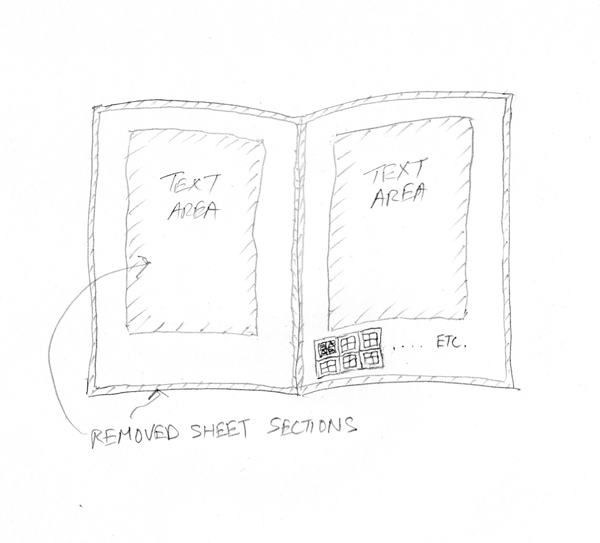 TEXT
AREA
TEXT
AREA
.... ETC.
REMOVED SHEET SECTIONS